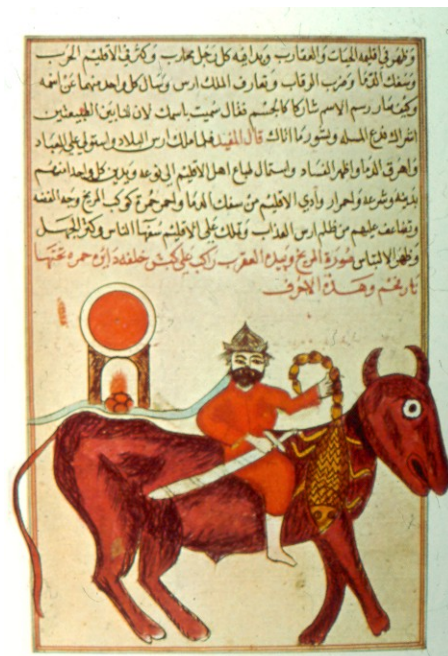 وظهر في اقليمه الحيات والعقارب وبدا فيه كل رجل محارب وكثر في الاقليم الحرب
وسفك الدما وضرب الرقاب وتعارف الملك ارس وسال كل واحد منهما عن اسمه
وكيف صار رسم الاسم شاركا كالجسم فقال سميت باسمك لان لنا بين الطبيعتين
اشراك فدع المسله وبشور ما اتاك قال المفيد فلما ملك ارس البلاد واستولي علي العباد
واهرق الدما واظهر الفساد واستمال طباع اهل الاقليم الي نوعه وتدين كل واحد منهم
بدينه وشرعه واحمرار وادي الاقليم من سفك الدما واحمر حمرة كوكب المريخ وجه الفضه
وتضاعف عليهم من ظلم ارس العذاب وملك علي الاقليم سفها الناس وكثر الجهل
وظهر الالباس صورة المريخ وبيده العقرب راكب علي كبش خلفه دايره حمره تحتها
نار وهذه الاحرف